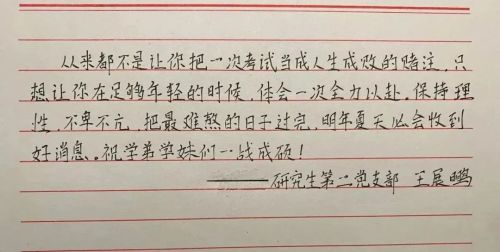 从来都不是让你把一次考试当成人生成败的赌注，只
想让你在足够年轻的时候，体会一次全力以赴。保持理
性，不卑不亢，把最难熬的日子过完，明年夏天必会收到
好消息。祝学弟学妹们一战成硕！
——研究生第二党支部 王展鹏